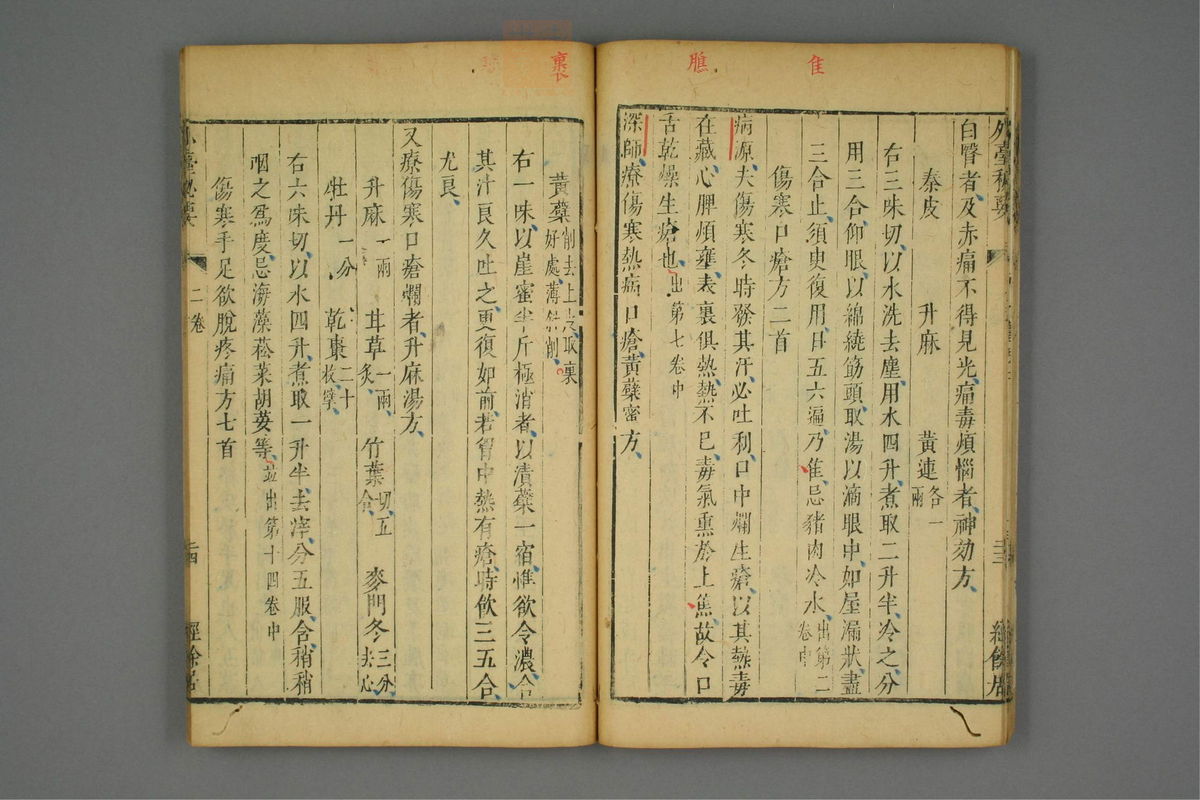 隹
膲
裏
外臺秘要
二三
經餘居
白瞖者及赤痛不得見光痛毒煩惱者神効方
秦皮 升麻 黃連各一兩
右三味切以水洗去塵用水四升煮取二升半冷之分
用三合仰眼以綿繞筯頭取湯以滴眼中如屋漏狀盡
三合止須臾復用日五六遍乃隹忌豬肉冷水出第二卷中
傷寒口瘡方二首
病源夫傷寒冬時發其汗必吐利口中爛生瘡以其熱毒
在藏心脾煩壅表裏俱熱熱不已毒氣熏於上焦故令口
舌乾燥生瘡也出第七卷中
深師療傷寒熱病口瘡黃蘗蜜方
黃蘗削去上皮取裏好處薄斜削
右一味以崖蜜半斤極消者以漬蘗一宿惟欲令濃含
其汁良久吐之更復如前若胷中熱有瘡時飲三五合
尤良
又療傷寒口瘡爛者升麻湯方
升麻一兩 甘草一兩炙 竹葉切五合 麥門冬三分去心
牡丹一分 乾棗二十枚擘
右六味切以水四升煮取一升半去滓分五服含稍稍
咽之爲度忌海藻菘菜胡荽等並出第十四卷中
傷寒手足欲脫疼痛方七首
外臺秘要
二卷
二四
經餘居